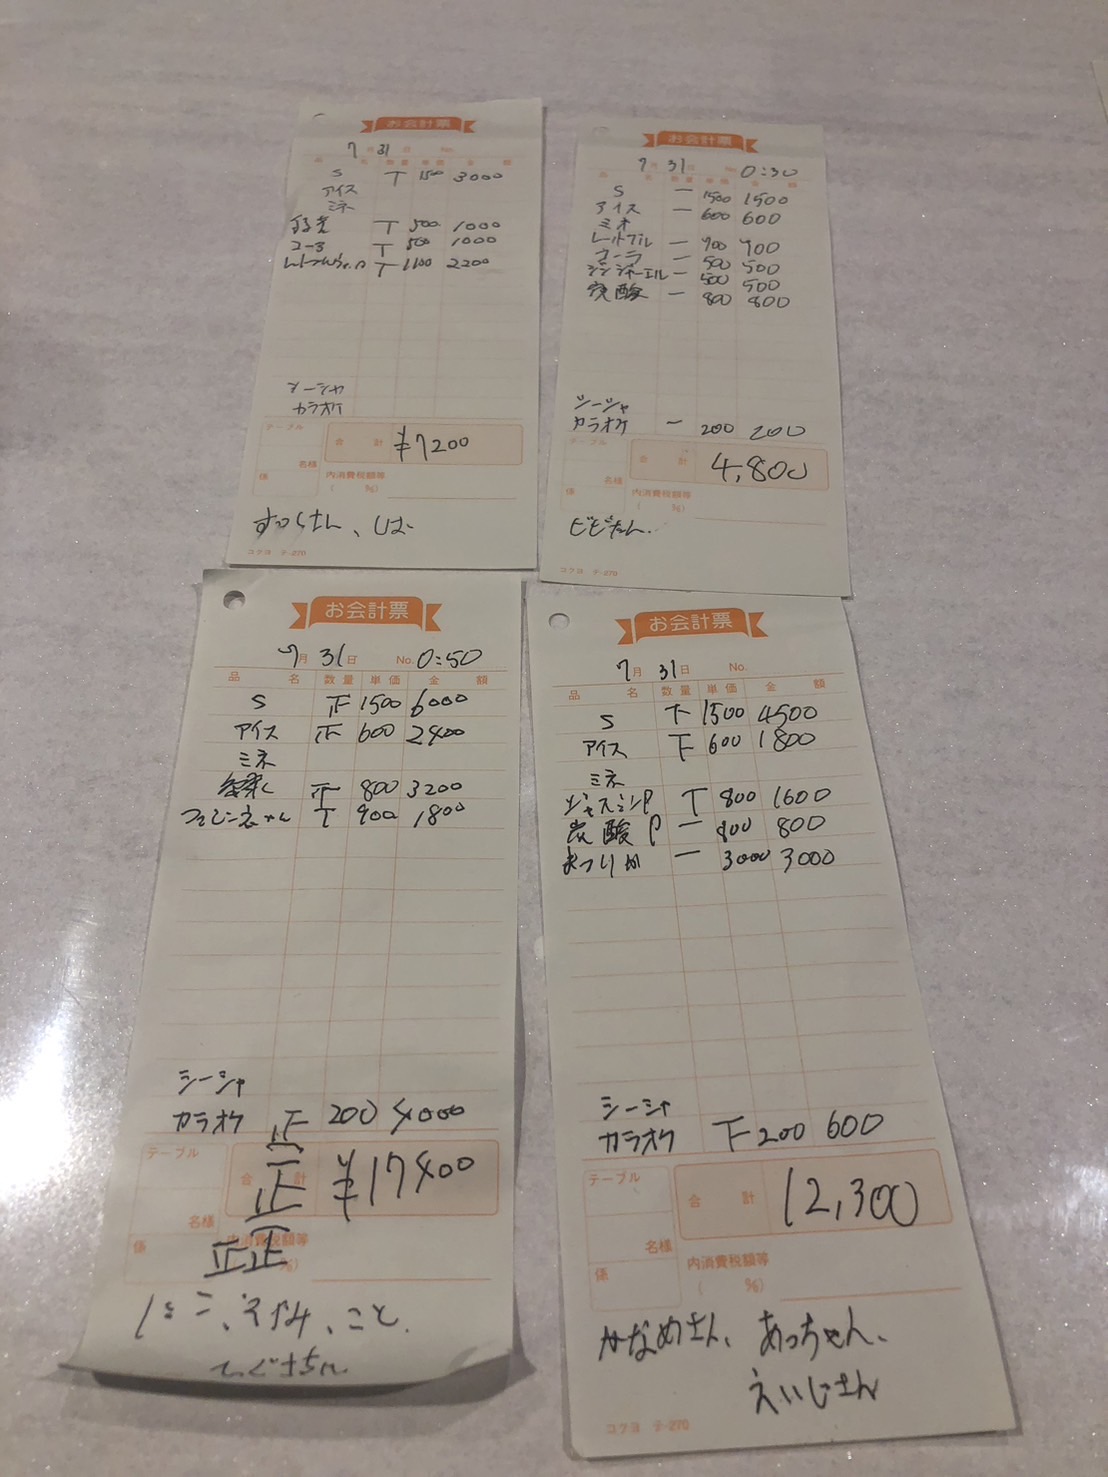 お会計票
7月31日 No.
品 名 数量 単価 金 額
S T 1500 3000
アイス
ミネ
T 500 1000
コーラ T 500 1000
T 1100 2200
シーシャ
カラオケ
テーブル
合 計 ¥7200
名様
係 内消費税額等
( %)
コクヨ テ-270
お会計票
7月31日 No. 0:30
S 一 1500 1500
アイス 一 600 600
ミネ
レッドブル 一 900 900
コーラ 一 500 500
ジンジャーエール 一 500 500
炭酸 一 800 800
シーシャ
カラオケ 一 200 200
テーブル
合 計 4,800
名様
係 内消費税額等
( %)
ビビたん.
コクヨ テ-270
お会計票
7月31日 No. 0:50
品 名 数量 単価 金 額
S 正 1500 6000
アイス 正 600 2400
ミネ
正 800 3200
T 900 1800
シーシャ
カラオケ 正 200 4000
正
テーブル
合 計 ¥17400
名様 正正
係 内消費税額等
%)
お会計票
7月31日 No.
品 名 数量 単価 金 額
S 下 1500 4500
アイス 下 600 1800
ミネ
ジャスミンP T 800 1600
炭酸P 一 800 800
まつりか 一 3000 3000
シーシャ
カラオケ 下 200 600
テーブル
合 計 12,300
名様
係 内消費税額等
( %)
かなめさん、あっちゃん、
えいじさん
コクヨ テ-270